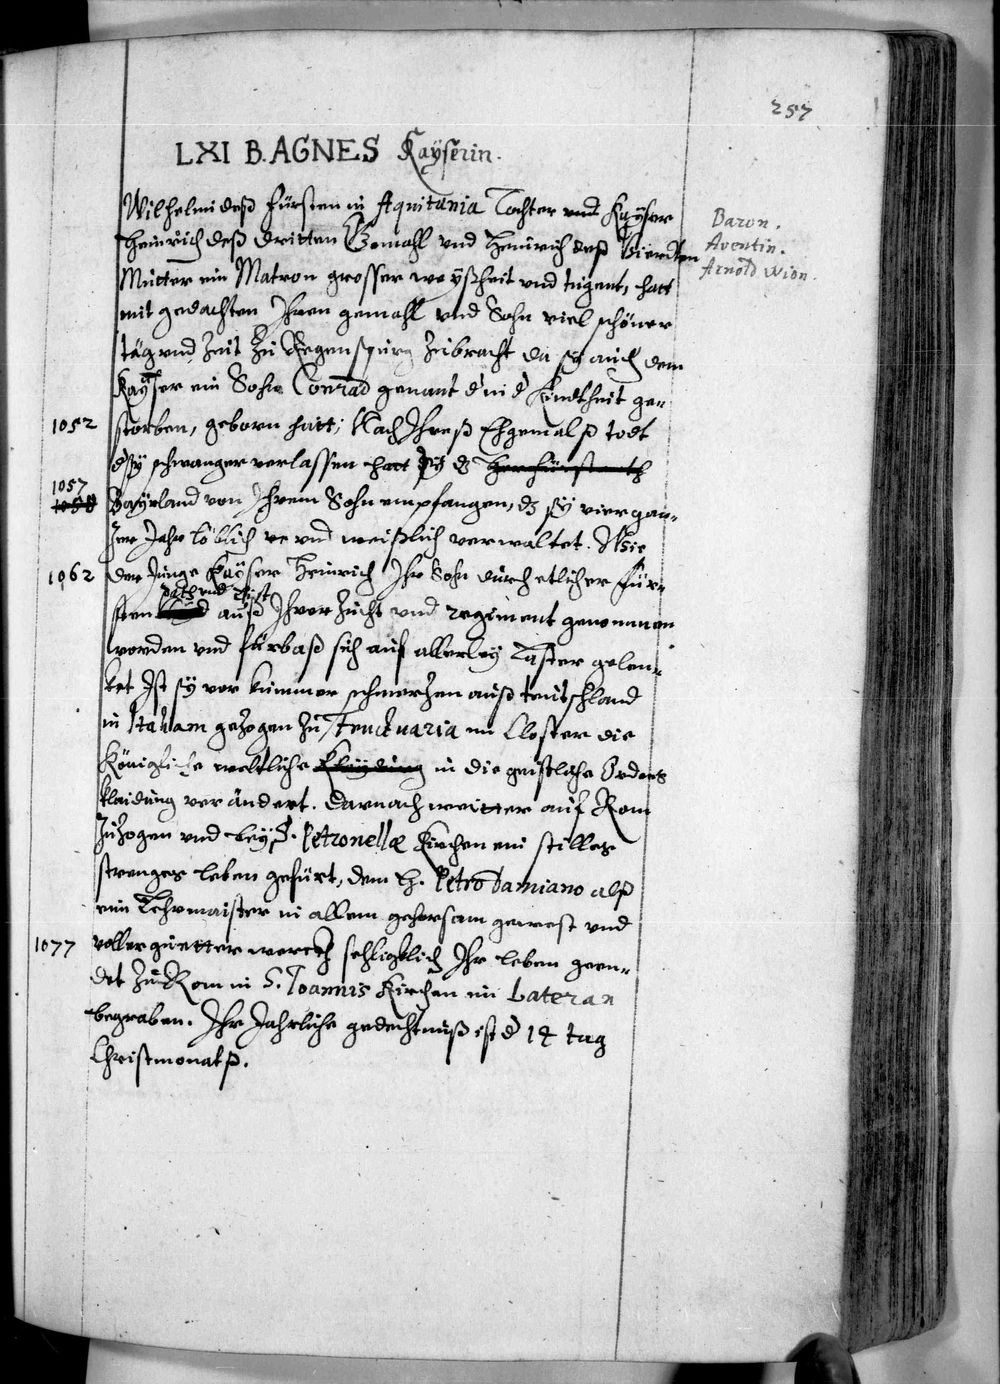 257
LXI B. AGNES Kaÿserin.
Wilhelmi deß Fürsten in Aquitania Tochter und Kaÿser
Heinrich deß dritten Gemahl und Heinrich deß Vierdten
Mutter ein Matron grosser weyßheit und tugent, hatt
mit gedachten Ihren gemahl und Sohn viel schöner
täg und Zeit Zu Regenspurg Zubracht da sy auch dem
Kaÿser ein Sohn Conrad genant d in d Kindtheit ge-
storben, geborn hatt; Nach Ihreß Ehgemalß todt
d sy schwanger verlassen hatt sy dz
Bayrland von Ihrem Sohn empfangen, dz sy vier gan-
Zer Jahr löblich und weißlich verwaltet. Alß
der Junge Kaÿser Heinrich Ihr Sohn durch etlicher für-
sten rath und list auß Ihrer Zucht und regiment genommen
worden und fürbaß sich auf allerley Laster gelen-
ket Ist sy vor kummer schmerzen auß teutschland
in Italiam gezogen Zu Fructuaria im Closter die
Königliche weltliche Kleydung in die geistliche Ordens
klaidung verändert. Darnach weitter auf Rom
Zuzogen und bey S. Petronellæ Kirchen ein stilles
strenges leben gefürt, dem h. Petro Damiano alß
ein Lehrmaister in allem gehorsam gewest und
voller guetter werckh sehligklich Ihr leben geen-
det Zu Rom in S. Joannis Kirchen im Lateran
begraben. Ihr Jahrliche gedechtnuß ist d 14 tag
Christmonatß.
Baron.
Aventin.
Arnold Wion.
1052
1057
1058
1062
1077